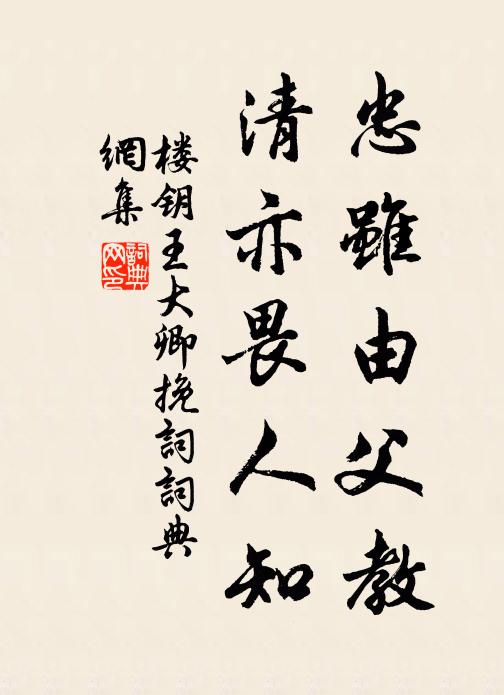 忠雖由父教
清亦畏人知
楼钥王大卿挽詞詞典
網集
詞典网印